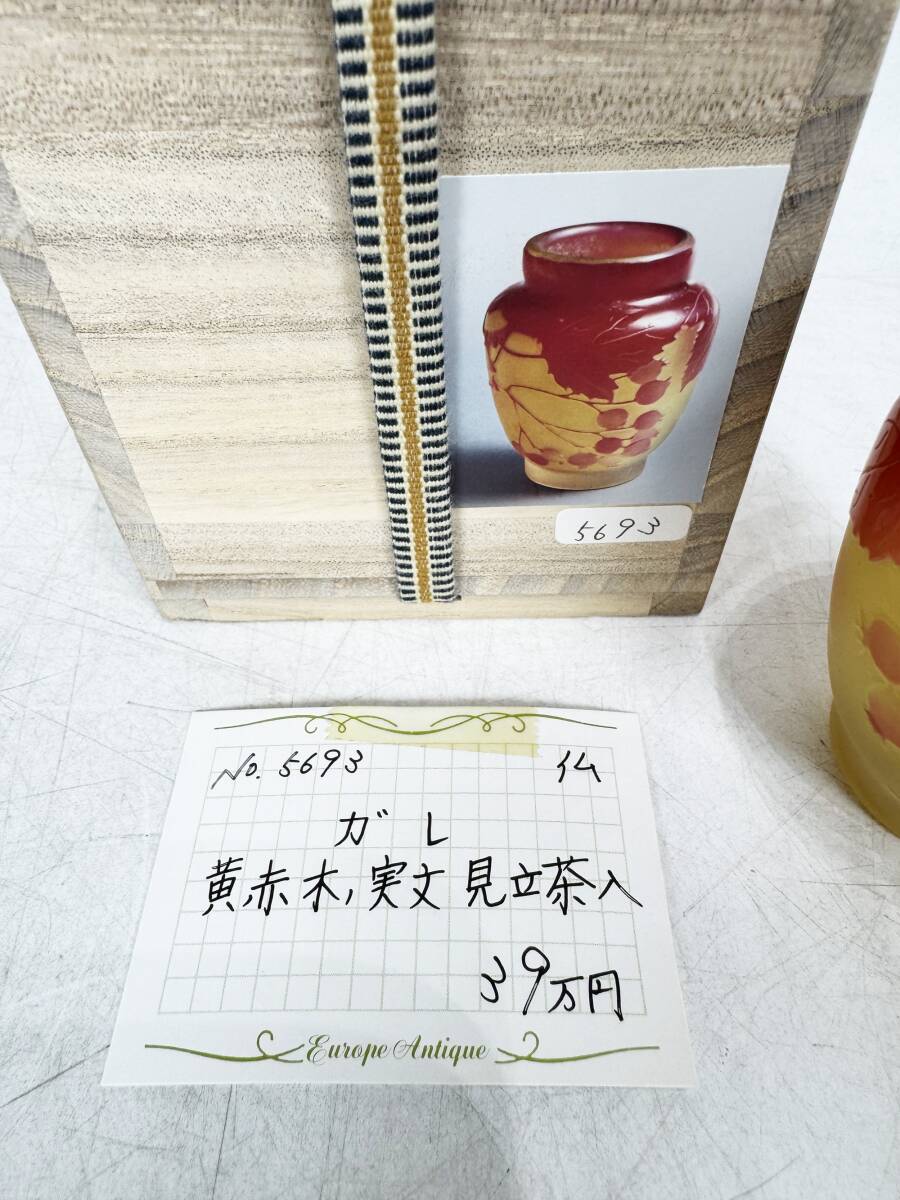 5693
No. 5693 イム
ガレ
黄赤木ノ実文 見立茶入
39万円
Europe Antique